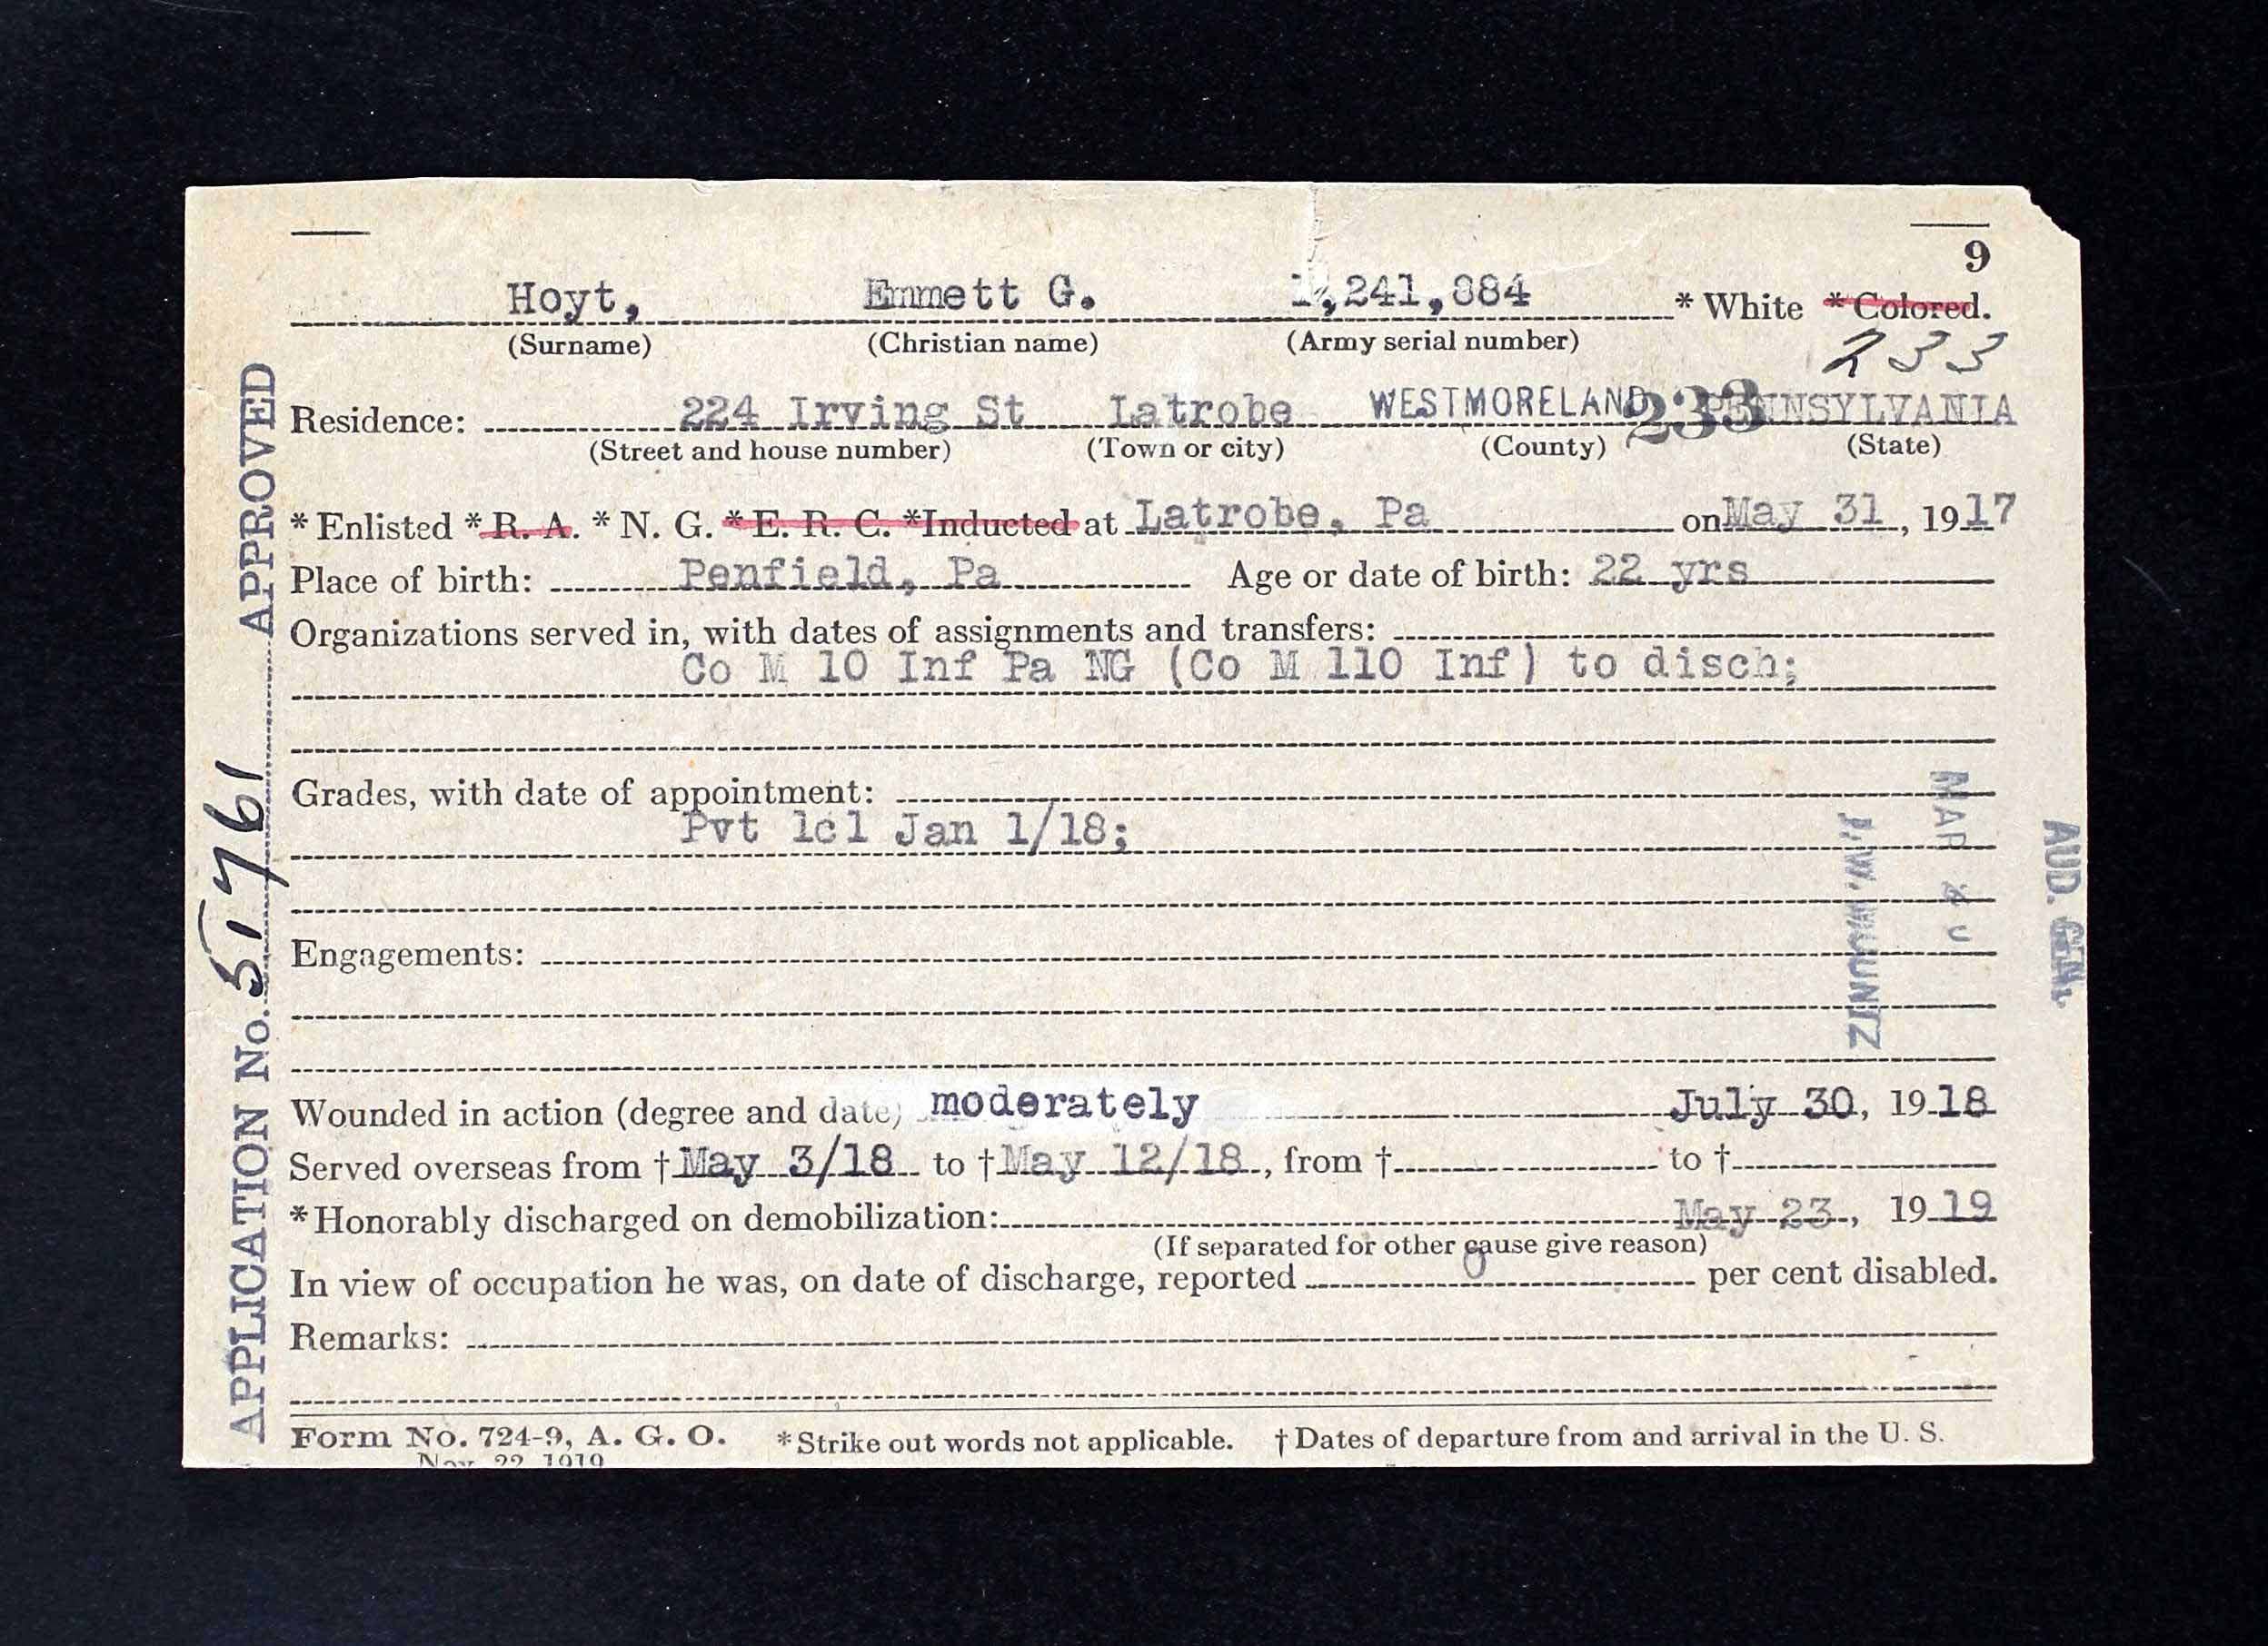 9
Hoyt, Emmett G. 1,241,884 * White * Colored.
(Surname) (Christian name) (Army serial number)
233
Residence: 224 Irving St Latrobe WESTMORELAND 233 PENNSYLVANIA
(Street and house number) (Town or city) (County) (State)
* Enlisted * R. A. * N. G. * E. R. C. *Inducted at Latrobe, Pa on May 31, 1917
Place of birth: Penfield, Pa Age or date of birth: 22 yrs
Organizations served in, with dates of assignments and transfers:
Co M 10 Inf Pa NG (Co M 110 Inf) to disch;
Grades, with date of appointment:
Pvt 1cl Jan 1/18;
Engagements:
Wounded in action (degree and date) moderately July 30, 1918
Served overseas from † May 3/18 to † May 12/18, from † to †
* Honorably discharged on demobilization: May 23, 1919
(If separated for other cause give reason)
In view of occupation he was, on date of discharge, reported 0 per cent disabled.
Remarks:
Form No. 724-9, A. G. O. * Strike out words not applicable. † Dates of departure from and arrival in the U. S.
Nov. 22 1919
APPLICATION No. 51761 APPROVED
MAR
AUD. GEN.